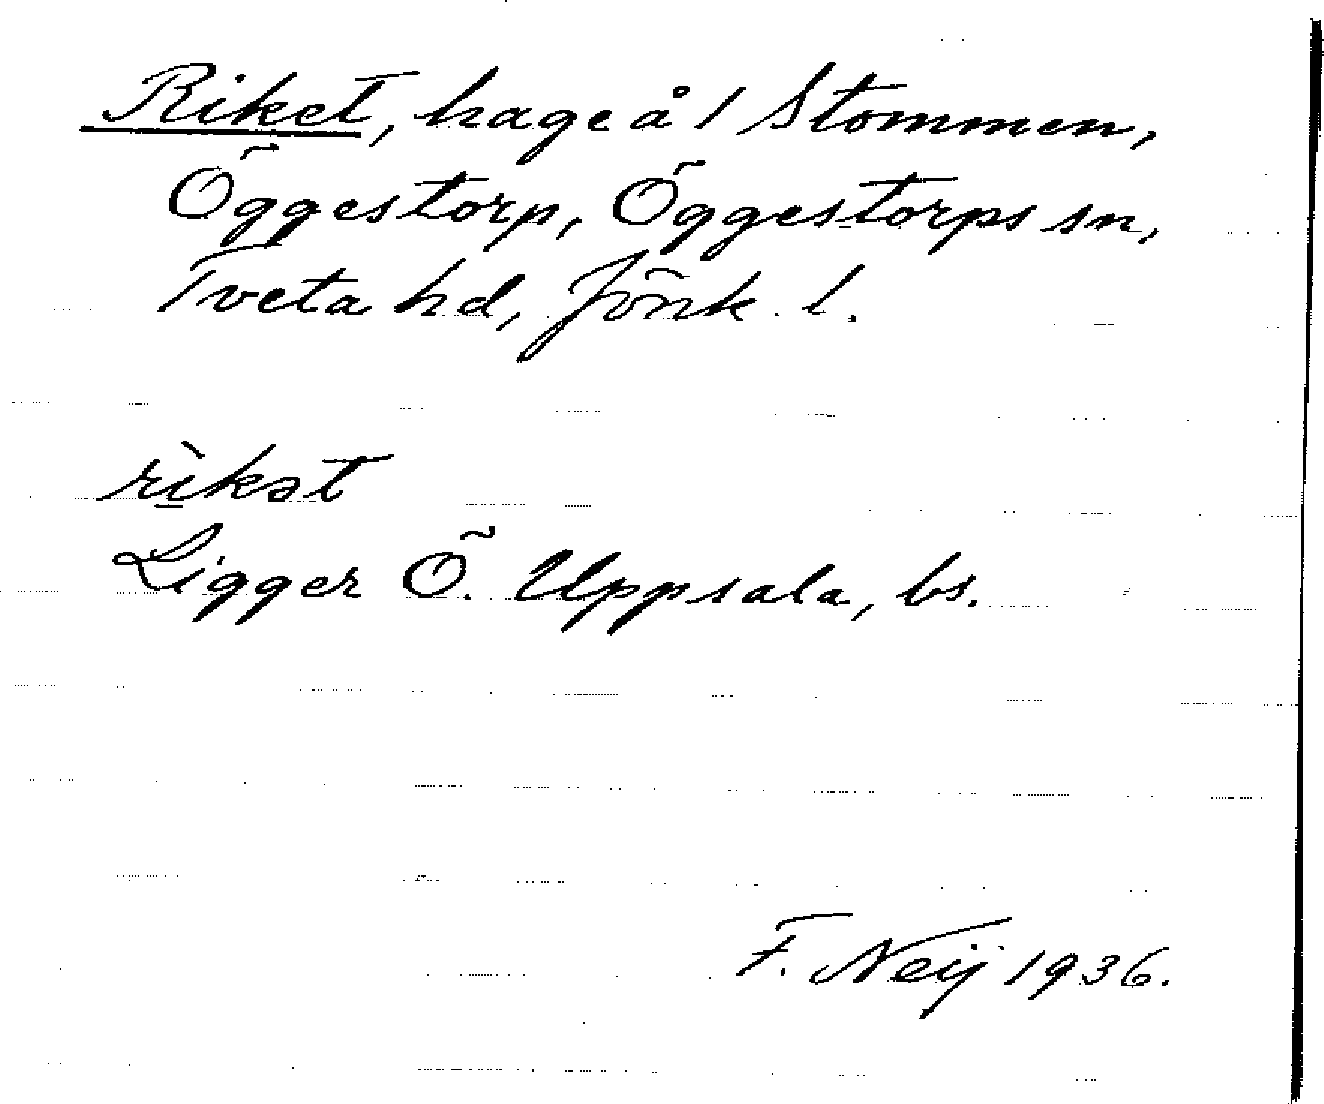 Riket, hage å 1 Stommen,
Öggestorp, Öggestorps sn,
Tveta hd, Jönk. l.
rìkət
Ligger Ö. Uppsala, bs.
F. Neij 1936.